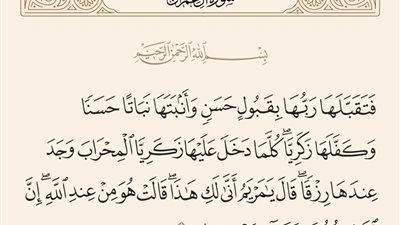 سورة آل عمران
بِسْمِ اللَّهِ الرَّحْمَٰنِ الرَّحِيمِ
فَتَقَبَّلَهَا رَبُّهَا بِقَبُولٍ حَسَنٍ وَأَنۢبَتَهَا نَبَاتًا حَسَنًا
وَكَفَّلَهَا زَكَرِيَّا ۖ كُلَّمَا دَخَلَ عَلَيْهَا زَكَرِيَّا ٱلْمِحْرَابَ وَجَدَ
عِندَهَا رِزْقًا ۖ قَالَ يَٰمَرْيَمُ أَنَّىٰ لَكِ هَٰذَا ۖ قَالَتْ هُوَ مِنْ عِندِ ٱللَّهِ ۖ إِنَّ